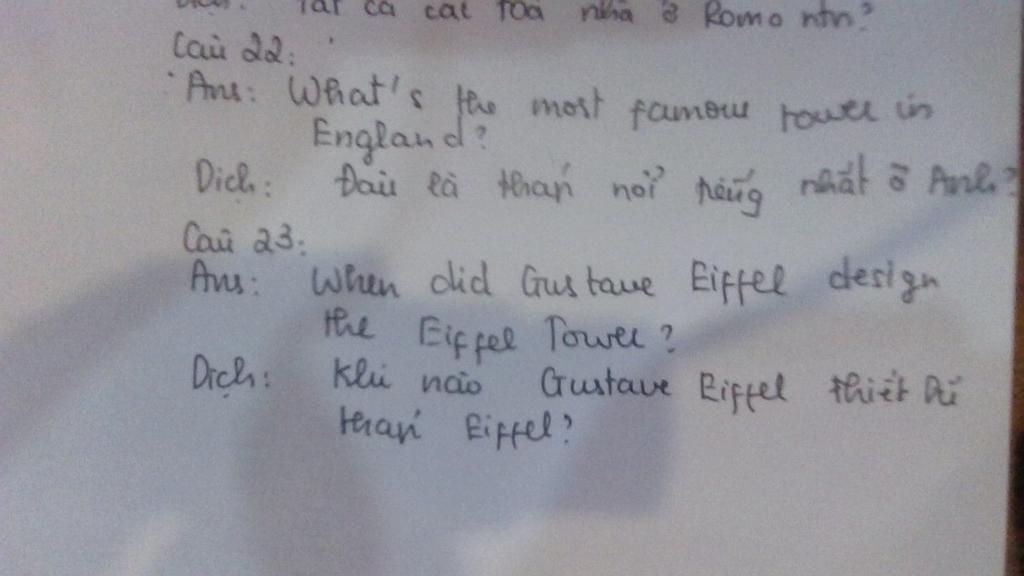 Dịch: Tất cả các toà nhà ở Romo ntn?
Câu 22:
Ans: What's the most famous tower in
England?
Dịch: Đâu là tháp nổi tiếng nhất ở Anh?
Câu 23:
Ans: When did Gustave Eiffel design
the Eiffel Tower?
Dịch: Khi nào Gustave Eiffel thiết kế
tháp Eiffel?